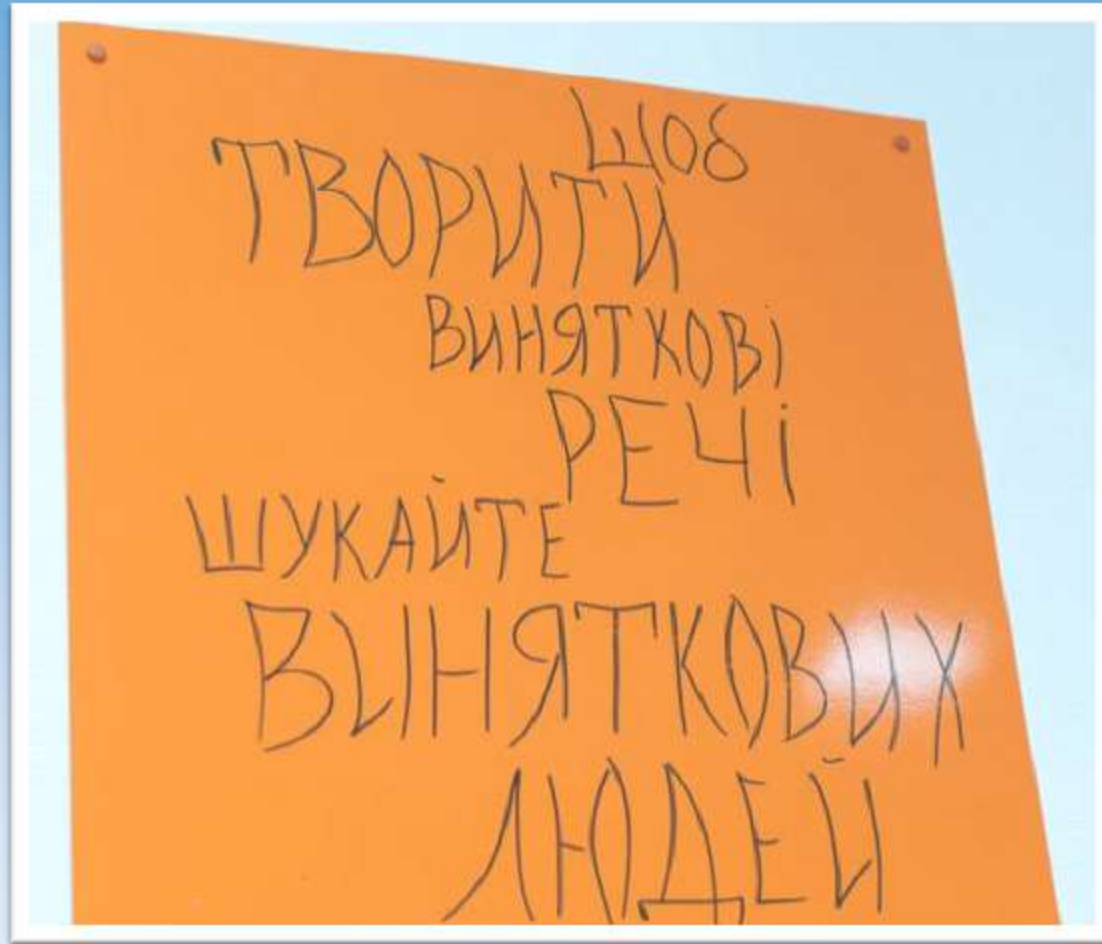 Щоб
ТВОРИТИ
ВИНЯТКОВІ
РЕЧІ
ШУКАЙТЕ
ВИНЯТКОВИХ
ЛЮДЕЙ